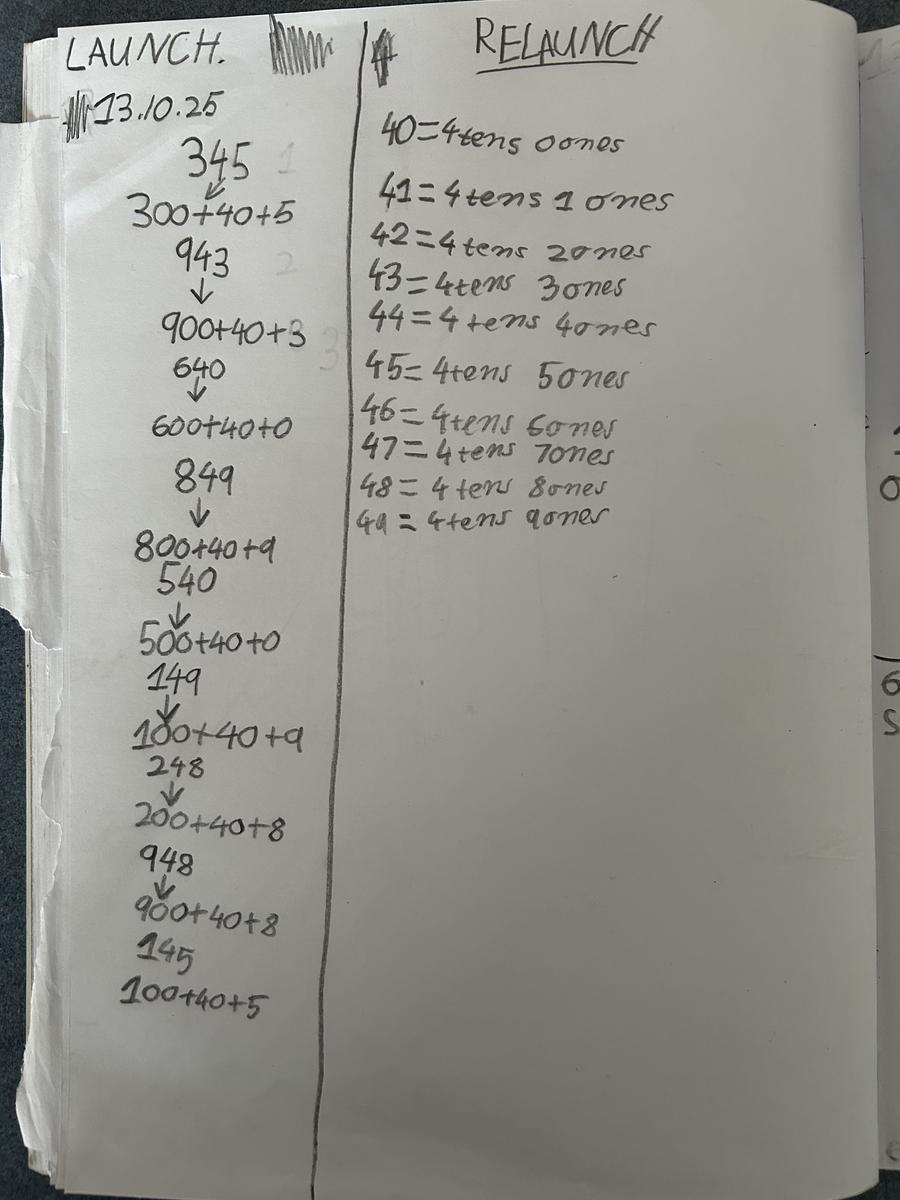 LAUNCH.
13.10.25
345
↓
300+40+5
943
↓
900+40+3
640
↓
600+40+0
849
↓
800+40+9
540
↓
500+40+0
149
↓
100+40+9
248
↓
200+40+8
948
↓
900+40+8
145
100+40+5
1
2
3
RELAUNCH
40=4tens 0ones
41=4tens 1 ones
42=4tens 2ones
43=4tens 3ones
44=4 tens 4ones
45=4tens 5ones
46=4tens 6ones
47=4tens 7ones
48=4 tens 8ones
49=4tens 9ones
0
6
S